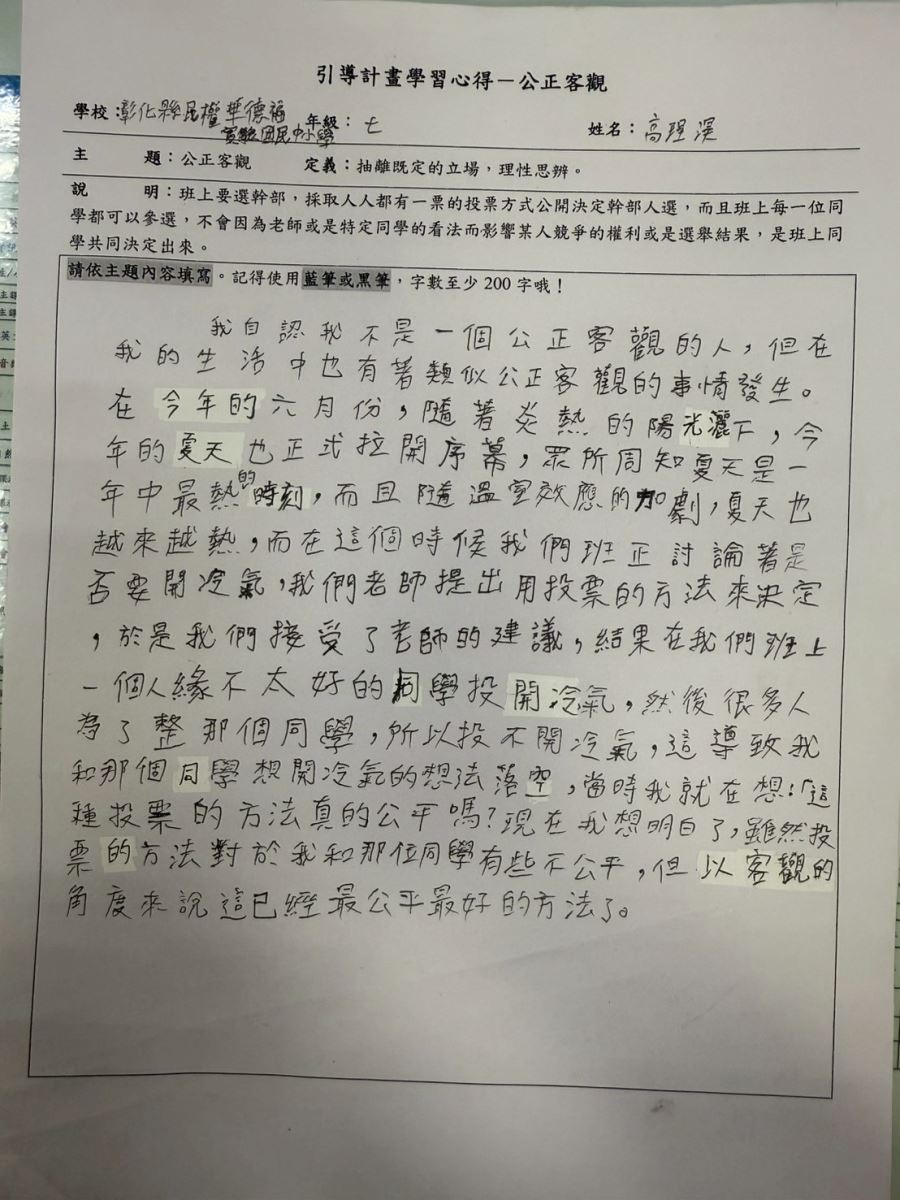 引導計畫學習心得－公正客觀
學校：彰化縣民權華德福
實驗國民中小學
年級：七
姓名：高理淏
主 題：公正客觀 定義：抽離既定的立場，理性思辨。
說 明：班上要選幹部，採取人人都有一票的投票方式公開決定幹部人選，而且班上每一位同
學都可以參選，不會因為老師或是特定同學的看法而影響某人競爭的權利或是選舉結果，是班上同
學共同決定出來。
請依主題內容填寫。記得使用藍筆或黑筆，字數至少 200 字哦！
我自認我不是一個公正客觀的人，但在
我的生活中也有著類似公正客觀的事情發生。
在今年的六月份，隨著炎熱的陽光灑下，今
年的夏天也正式拉開序幕，眾所周知夏天是一
年中最熱的時刻，而且隨溫室效應的加劇，夏天也
越來越熱，而在這個時候我們班正討論著是
否要開冷氣，我們老師提出用投票的方法來決定
，於是我們接受了老師的建議，結果在我們班上
一個人緣不太好的同學投開冷氣，然後很多人
為了整那個同學，所以投不開冷氣，這導致我
和那個同學想開冷氣的想法落空，當時我就在想：「這
種投票的方法真的公平嗎？現在我想明白了，雖然投
票的方法對於我和那位同學有些不公平，但以客觀的
角度來說這已經最公平最好的方法了。